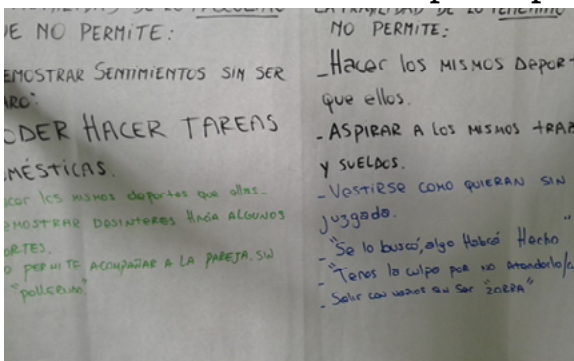 DE LO MASCULINO
E NO PERMITE:
EMOSTRAR SENTIMIENTOS SIN SER
ARO".
ODER HACER TAREAS
MÉSTICAS.
acer los mismos deportes que ellas-
EMOSTRAR DESINTERES HACIA ALGUNOS
ORTES.
O PERMITE ACOMPAÑAR A LA PAREJA. SIN
"POLLERUDO"
DE LO FEMENINO
NO PERMITE:
-Hacer los MISMOS DEPORT
que ellos.
-ASPIRAR A LOS MISMOS TRAB
Y SUELDOS.
-VESTIRSE COMO QUIERAN SIN
juzgada.
-"Se lo buscó, algo Habrá Hecho"
-"Tenes la culpa por no Atenderlo/c
-Salir con varios sin Ser "ZORRA"